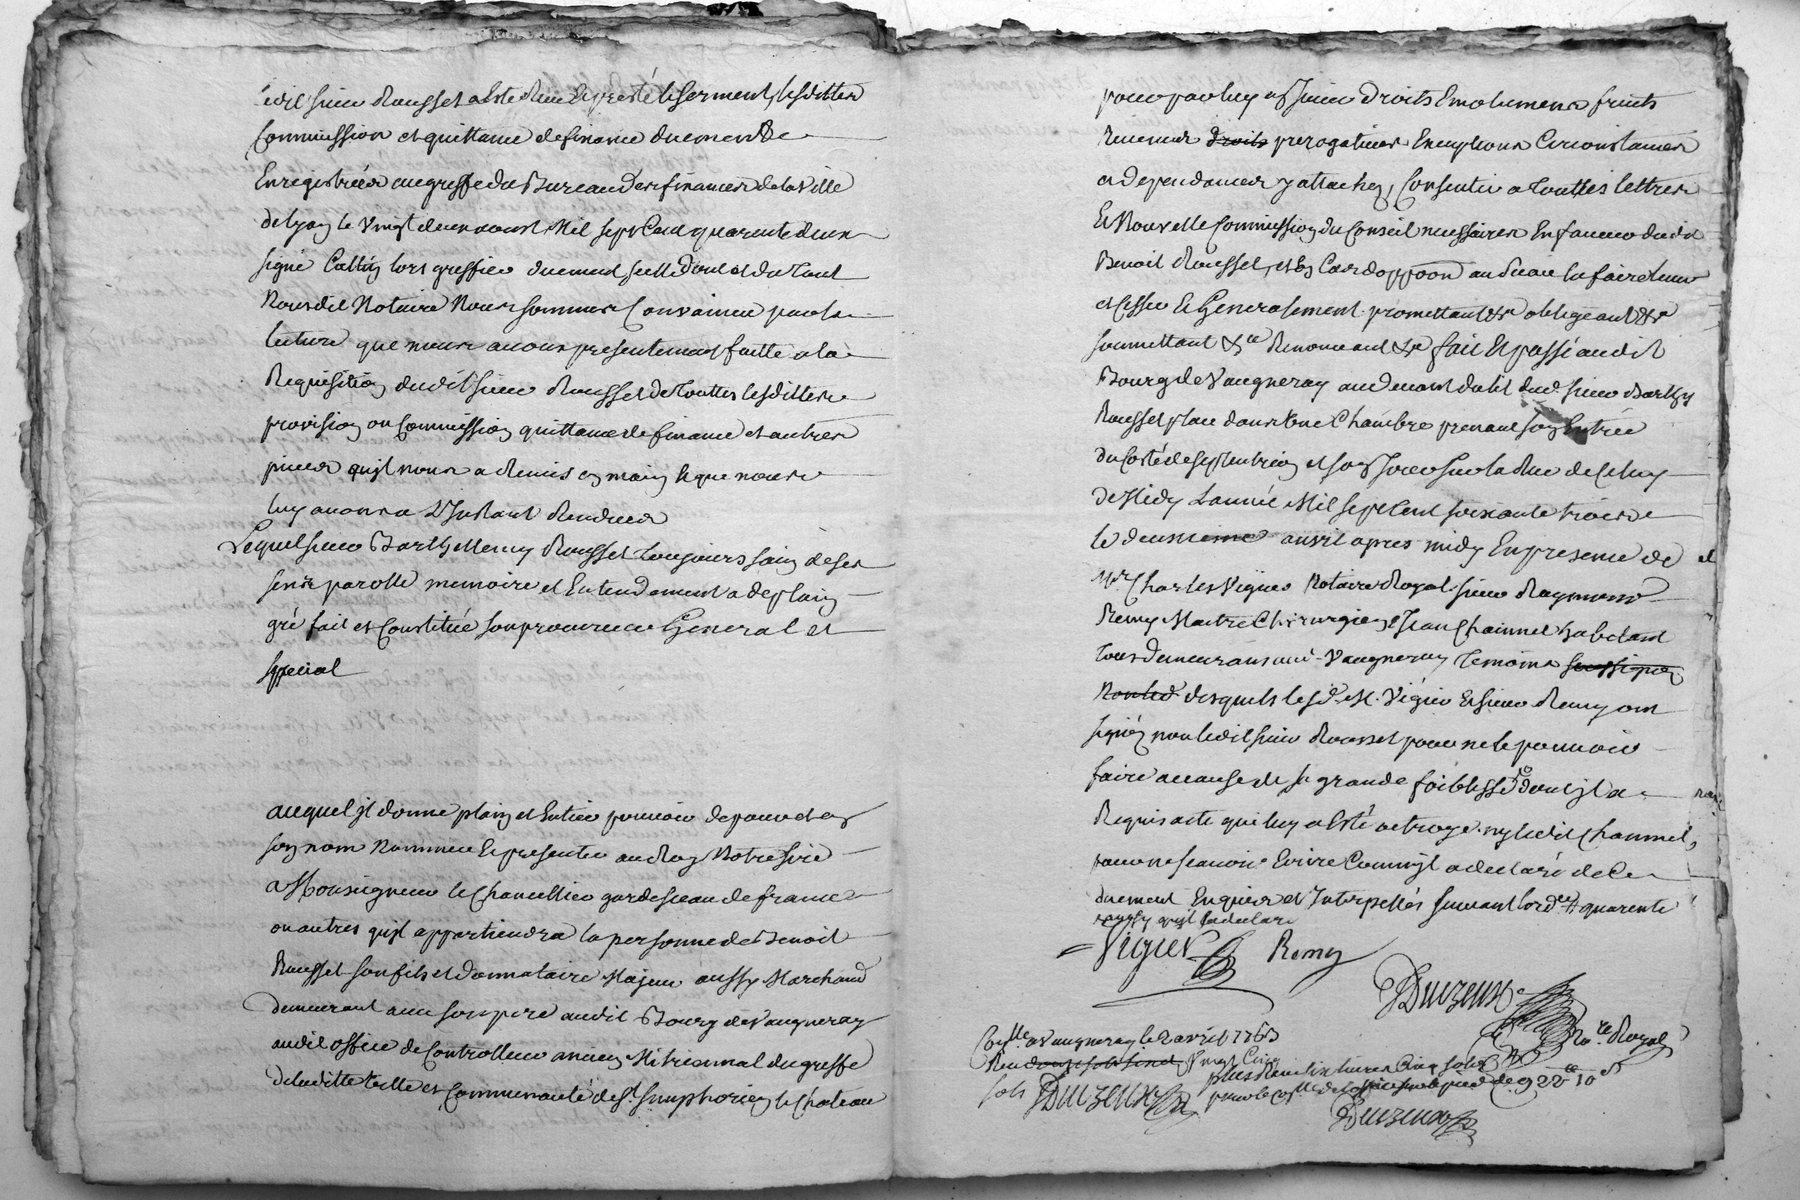 ledit sieur Rousset a Esté Receu Et presté le serment, lesdittes
Commission et quittance de finance duement
Enregistrées au greffe du Bureau des finances de la Ville
de Lyon le Vingt deux aoust Mil sept Cent quarente deux
signé lors greffier duement scellé dont et du tout
Nousdit Notaire Nous sommes Convaincu par la
lecture que nous avons presentement faitte a la
Requisition dudit sieur Rousset de Touttes lesdittes
provision ou Commission quittance de finance et autres
pieces qujl nous a Remis en main Et que nous
luy avons a L'Instant Rendues
Lequel sieur Barthellemy Rousset toujours sain de ses
sens parolle memoire et Entendement a de plain
gré fait et Constitué son procureur General et
special
auquel jl donne plain et Entier pouvoir de pour et en
son nom Nommer Et presenter au Roy Notre sire
a Monseigneur le Chancellier garde sceau de france
ou autres qujl appartiendra la personne de Benoit
Rousset son fils et donnataire Majeur aussy Marchand
demeurant avec son pere audit Bourg de Vaugneray
audit office de Controlleur ancien Mitriennal du greffe
de laditte taille et Communauté de St Simphorien le Château
pour par luy jouir Droits Emolumens fruits
Revenus droits prerogatives Exemptions Circonstances
et dependances y attachez, Consentir a Touttes lettres
Et Nouvelle Commission du Conseil necessaires En faveur dudit
Benoit Rousset, et En Cas doppoon la faire lever
et Cesser Et Generalement promettant &ra obligeant &ra
soumettant &ra Renonceant &ra fait Et passé audit
Bourg de Vaugneray au devant du lit dud. sieur Barthy
Rousset place dans Une Chambre prenant son Entrée
du Costé de septentrion et son Jour sur la Rue de Celuy
de Midy L'année Mil sept Cent soixante trois Et
le deuxieme avril apres midy En presence de
Mre Charles Vigier Notaire Royal sieur Raymond
Remy Maitre Chirurgien & Jean Chammel habitant
tous demeurans aud. Vaugneray temoins soussignez
Non led. desquels lesd. Me Vigier Et sieur Remy ont
signéz non ledit sieur Rousset pour ne le pouvoir
faire a cause de sa grande foiblesse dont jl a
Requis acte qui luy a Esté octroyé ny ledit Chammel,
pour ne scavoir Ecrire Comm'jl a declaré de Ce
duement Enquis et Interpellés suivant lordce quarente
qujl la declaré
Vigier Remy
Duizeux
Nore Royal
Collé a Vaugneray le 2 avril 1763
Reçu douze sols six d. Vingt Cinq
sols Duizeux
plus Reçu livres Cinq sols
pour le de loffice sur le pied de 922 10
Duizeux